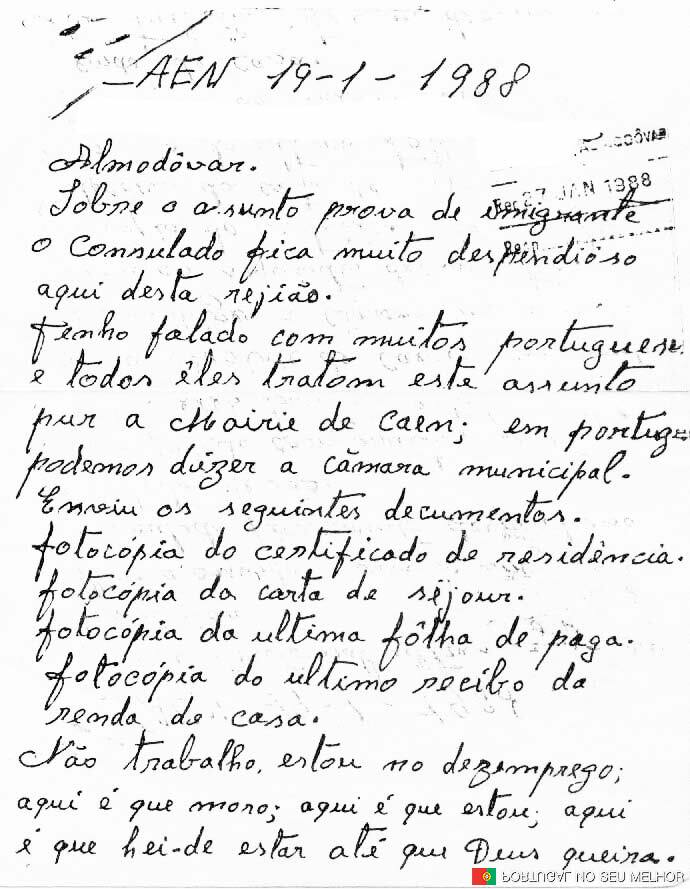 AEN 19-1-1988
Almodôvar.
Rec. 27 JAN 1988
Sobre o asunto prova de emigrante
o Consulado fica muito despendioso
aqui desta rejião.
Tenho falado com muitos portuguese
e todos êles tratam este assunto
pur a Mairie de Caen; em portuga
podemos dizer a câmara municipal.
Enviu os seguintes decumentos.
fotocópia do certificado de residência.
fotocópia da carta de séjour.
fotocópia da ultima fôlha de paga.
fotocópia do ultimo recibo da
renda de casa.
Não trabalho, estou no dezemprego;
aqui é que moro; aqui é que estou; aqui
é que hei-de estar até que Deus queira.
PORTUGAL NO SEU MELHOR